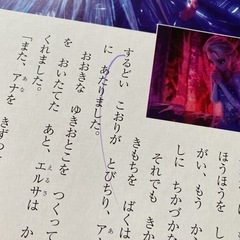 ほうほうを し
がい、もう か
しに ちかづかな
それでも きか
きもちを ばくは
するどい こおりが とびちり、ア
に あたりました。
おおきな ゆきおとこを つくって
を おいたてた あと、エルサは か
くれました。
「また、アナを きずつ